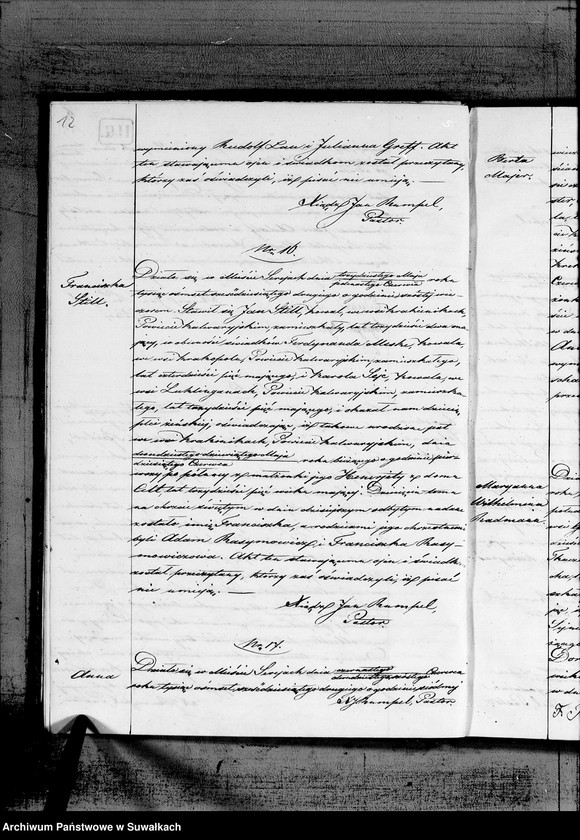 12
wymieniony Rudolf Lau i Julianna Greff. Akt
ten stawającemu ojcu i świadkom został przeczytany,
którzy zaś oświadczyli, iż pisać nie umieją. —
Xiądz Jan Rumpel,
Pastor.
No 16.
Franciszka
Still.
Działo się w Mieście Serejach dnia trzydziestego Maja
jedenastego Czerwca roku
tysiąc ośmset sześćdziesiątego drugiego o godzinie szóstej wie-
czorem. Stawił się Jan Still, kowal, we wsi Krakinikach,
Powiecie Kalwaryjskim, zamieszkały, lat trzydzieści dwa ma-
jący, w obecności świadków Ferdynanda Meske, kowala,
we wsi Krakopolu, Powiecie Kalwaryjskim, zamieszkałego,
lat czterdzieści pięć mającego, i Karola Seje, kowala, we
wsi Luklinganach, Powiecie Kalwaryjskim, zamieszka-
łego, lat trzydzieści pięć mającego, i okazał nam dziecię
płci żeńskiej, oświadczając, iż takowe urodzone jest
we wsi Krakinikach, Powiecie Kalwaryjskim, dnia
dwudziestego dziewiątego Maja
dziesiątego Czerwca roku bieżącego o godzinie
po północy z małżonki jego Henryjety z domu
lat trzydzieści pięć wieku mającej. Dziecięciu temu
na chrzcie świętym w dniu dzisiejszym odbytym nadane
zostało imię Franciszka, a rodzicami jego chrzestnemi
byli Adam Rasymowicz i Franciszka Rasy-
mowiczowa. Akt ten stawającemu ojcu i świadk.
został przeczytany, którzy zaś oświadczyli, iż pisać
nie umieją. —
Xiądz Jan Rumpel,
Pastor.
No 17.
Anna
Działo się w Mieście Serejach dnia Czerwca
roku tysiąc ośmset sześćdziesiątego drugiego o godzinie siódmej
X. J. Rumpel, Pastor.
Berta
Majer.
Maryanna
Wilhelmina
Radmann.
Archiwum Państwowe w Suwałkach